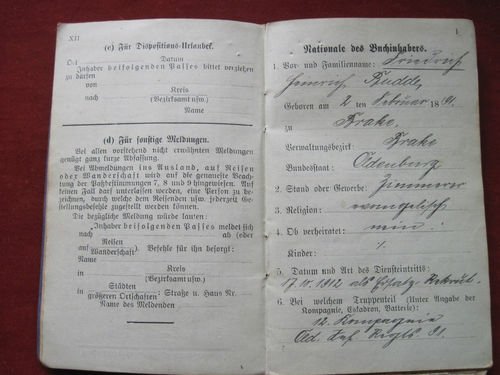 XII
(c) Für Dispositions-Urlauber.
Ort Datum
Inhaber beifolgenden Passes bittet verziehen
zu dürfen
von Kreis
nach (Bezirksamt usw.)
Name
(d) Für sonstige Meldungen.
Bei allen vorstehend nicht erwähnten Meldungen
genügt ganz kurze Abfassung.
Bei Abmeldungen ins Ausland, auf Reisen
oder Wanderschaft wird auf die genaueste Beach-
tung der Paßbestimmungen 7, 8 und 9 hingewiesen. Auf
keinen Fall darf unterlassen werden, eine Person zu be-
zeichnen, durch welche dem Reisenden usw. jederzeit Ge-
stellungsbefehle zugestellt werden können.
Die bezügliche Meldung würde lauten:
"Inhaber beifolgenden Passes meldet sich
nach ab (oder
auf Reisen
Wanderschaft). Befehle für ihn besorgt:
Name
in Kreis
(Bezirksamt usw.)
in Städten
größeren Ortschaften: Straße u. Haus Nr.
Name des Meldenden
1
Nationale des Buchinhabers.
1. Vor- und Familienname: Friedrich
Heinrich Budde,
Geboren am 2 ten Februar 1891.
zu Brake,
Verwaltungsbezirk: Brake
Bundesstaat: Oldenburg
2. Stand oder Gewerbe: Zimmerer
3. Religion: evangelisch
4. Ob verheiratet: nein!
Kinder: /.
5. Datum und Art des Diensteintritts:
1912 als Ersatz-Rekrut.
6. Bei welchem Truppenteil (Unter Angabe der
Kompagnie, Eskadron, Batterie):
12. Kompagnie
Old. Inf. Regts 91.